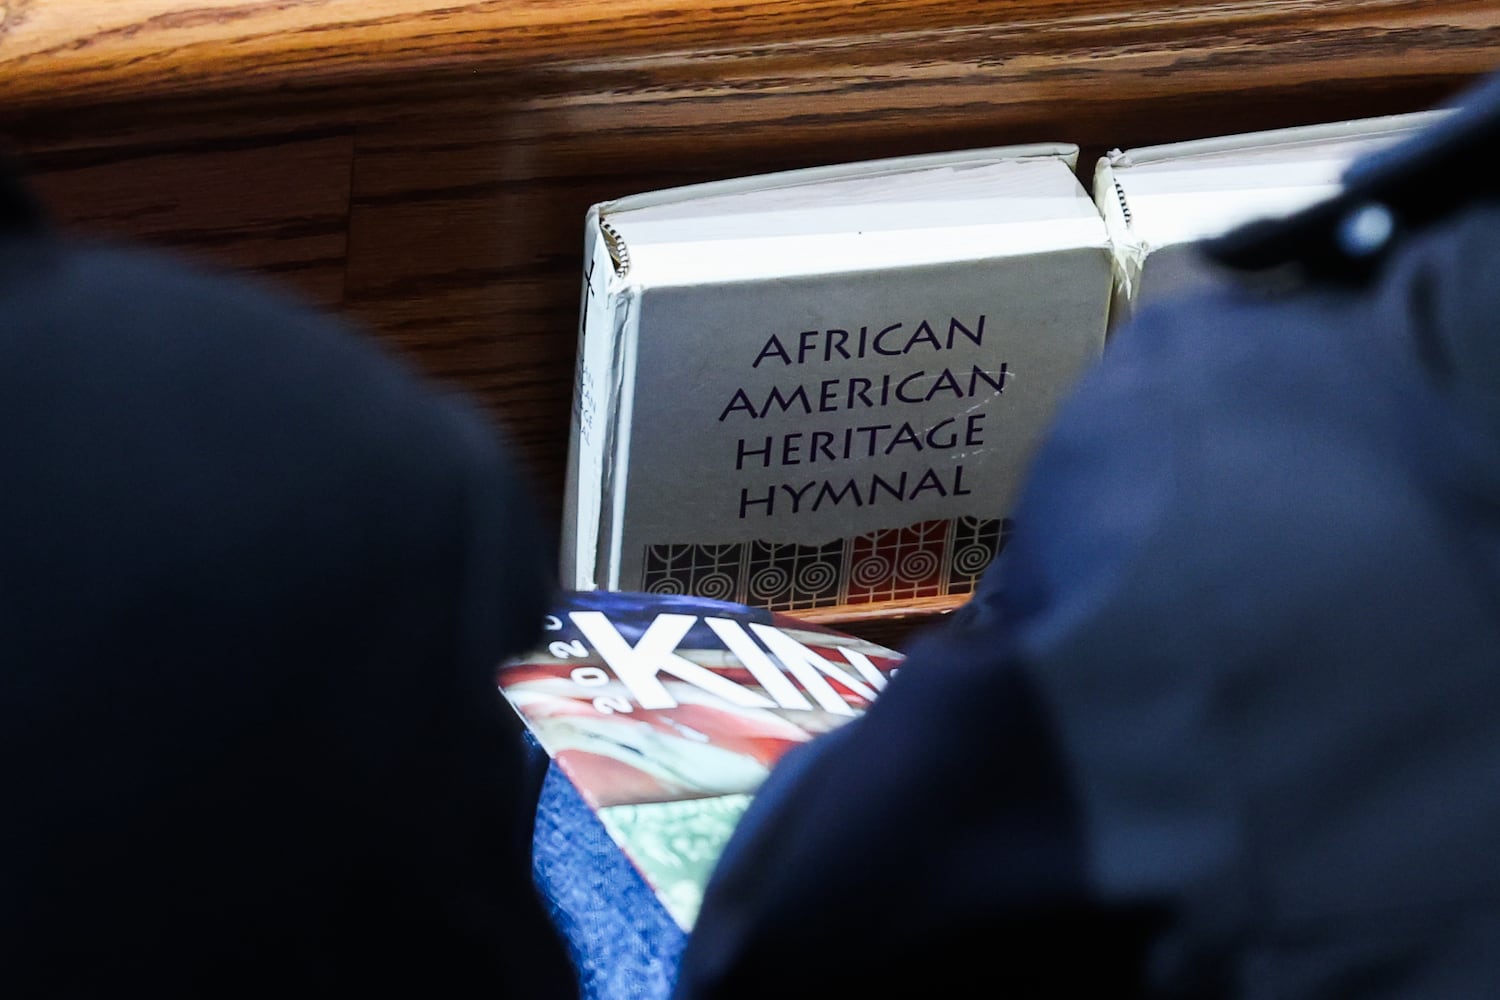 AFRICAN
AMERICAN
HERITAGE
HYMNAL
2020
KIN